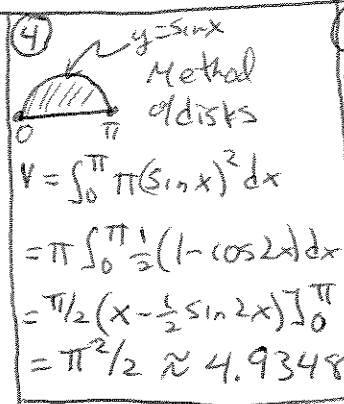 ④
y=sinx
Method
of disks
0 π
V = ∫₀^π π(sin x)² dx
= π ∫₀^π ½(1-cos2x)dx
= π/2 (x - ½ sin 2x)]₀^π
= π²/2 ≈ 4.9348